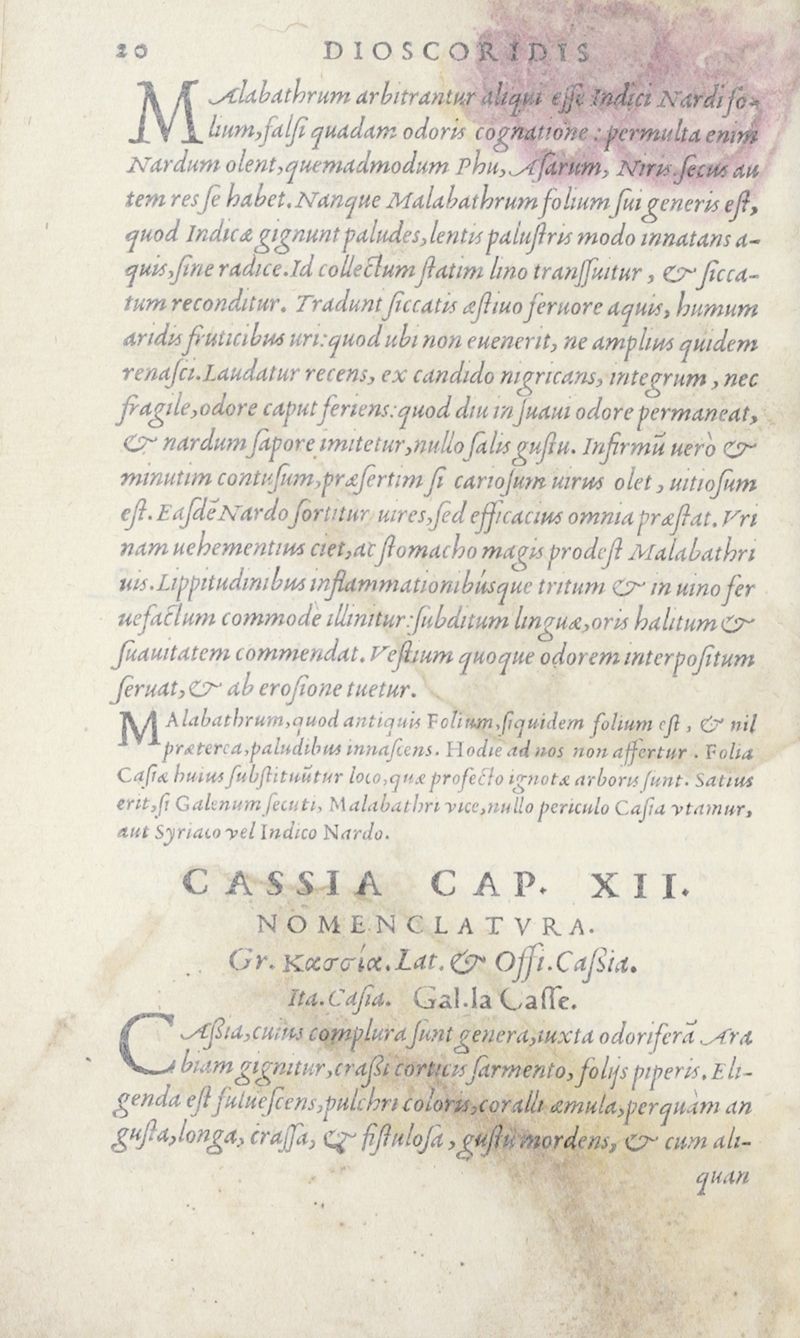 20 DIOSCORIDIS
MAlabathrum arbitrantur aliqui eſſe Indici Nardi fo-
lium, falſi quadam odoris cognatione : permulta enim
Nardum olent, quemadmodum Phu, Aſarum, Niris. ſecus au
tem res ſe habet. Nanque Malabathrum folium ſui generis eſt,
quod Indicæ gignunt paludes, lentis paluſtris modo innatans a-
quis, ſine radice. Id collectum ſtatim lino tranſſuitur , & ſicca-
tum reconditur. Tradunt ſiccatis æſtiuo feruore aquis, humum
aridis fruticibus uri: quod ubi non euenerit, ne amplius quidem
renaſci. Laudatur recens, ex candido nigricans, integrum , nec
fragile, odore caput feriens: quod diu in ſuaui odore permaneat,
& nardum ſapore imitetur, nullo ſalis guſtu. Infirmũ uerò &
minutim contuſum, præſertim ſi carioſum uirus olet , uitioſum
eſt. Eaſdẽ Nardo ſortitur uires, ſed efficacius omnia præſtat. Vri
nam uehementius ciet, ac ſtomacho magis prodeſt Malabathri
uis. Lippitudinibus inflammationibúsque tritum & in uino fer
uefactum commodè illinitur: ſubditum linguæ, oris halitum &
ſuauitatem commendat. Veſtium quoque odorem interpoſitum
ſeruat, & ab eroſione tuetur.
MAlabathrum, quod antiquis Folium, ſiquidem folium eſt , & nil
præterea, paludibus innaſcens. Hodie ad nos non affertur . Folia
Caſiæ huius ſubſtituũtur loco, quæ profecto ignotæ arboris ſunt. Satius
erit, ſi Galenum ſecuti, Malabathri vice, nullo periculo Caſia vtamur,
aut Syriaco vel Indico Nardo.
CASSIA CAP. XII.
NOMENCLATVRA.
Gr. Κασσία. Lat. & Offi. Caßia.
Ita. Caſia. Gal. la Caſſe.
CAßia, cuius complura ſunt genera, iuxta odoriferã Ara
biam gignitur, craßi corticis ſarmento, folijs piperis. Eli-
genda eſt fulueſcens, pulchri coloris, coralli æmula, perquàm an
guſta, longa, craſſa, & fiſtuloſa , guſtu mordens, & cum ali-
quan